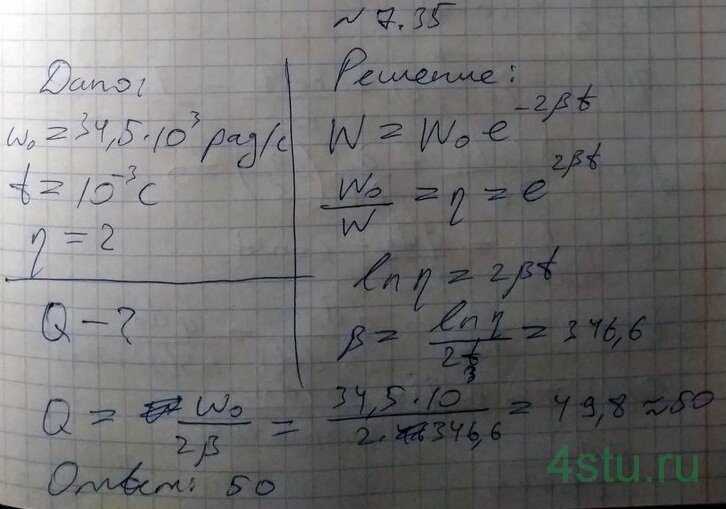 № 7.35
Дано:
ω₀ = 34,5·10³ рад/с
t = 10⁻³ с
η = 2
Q – ?
Решение:
W = W₀ e^(-2βt)
W₀/W = η = e^(2βt)
ln η = 2βt
β = ln η / 2t = 346,6
Q = ω₀ / 2β = 34,5·10³ / 2·346,6 = 49,8 ≈ 50
Ответ: 50
4stu.ru